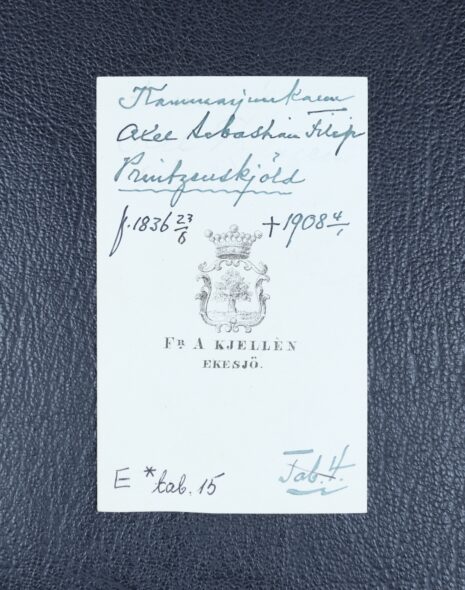 Kammarjunkaren
Axel Sebastian Filip
Printzenskjöld
f. 1836 23/6
+ 1908 4/1
Fr. A KJELLÈN
EKESJÖ.
E * tab. 15
Tab. 4.